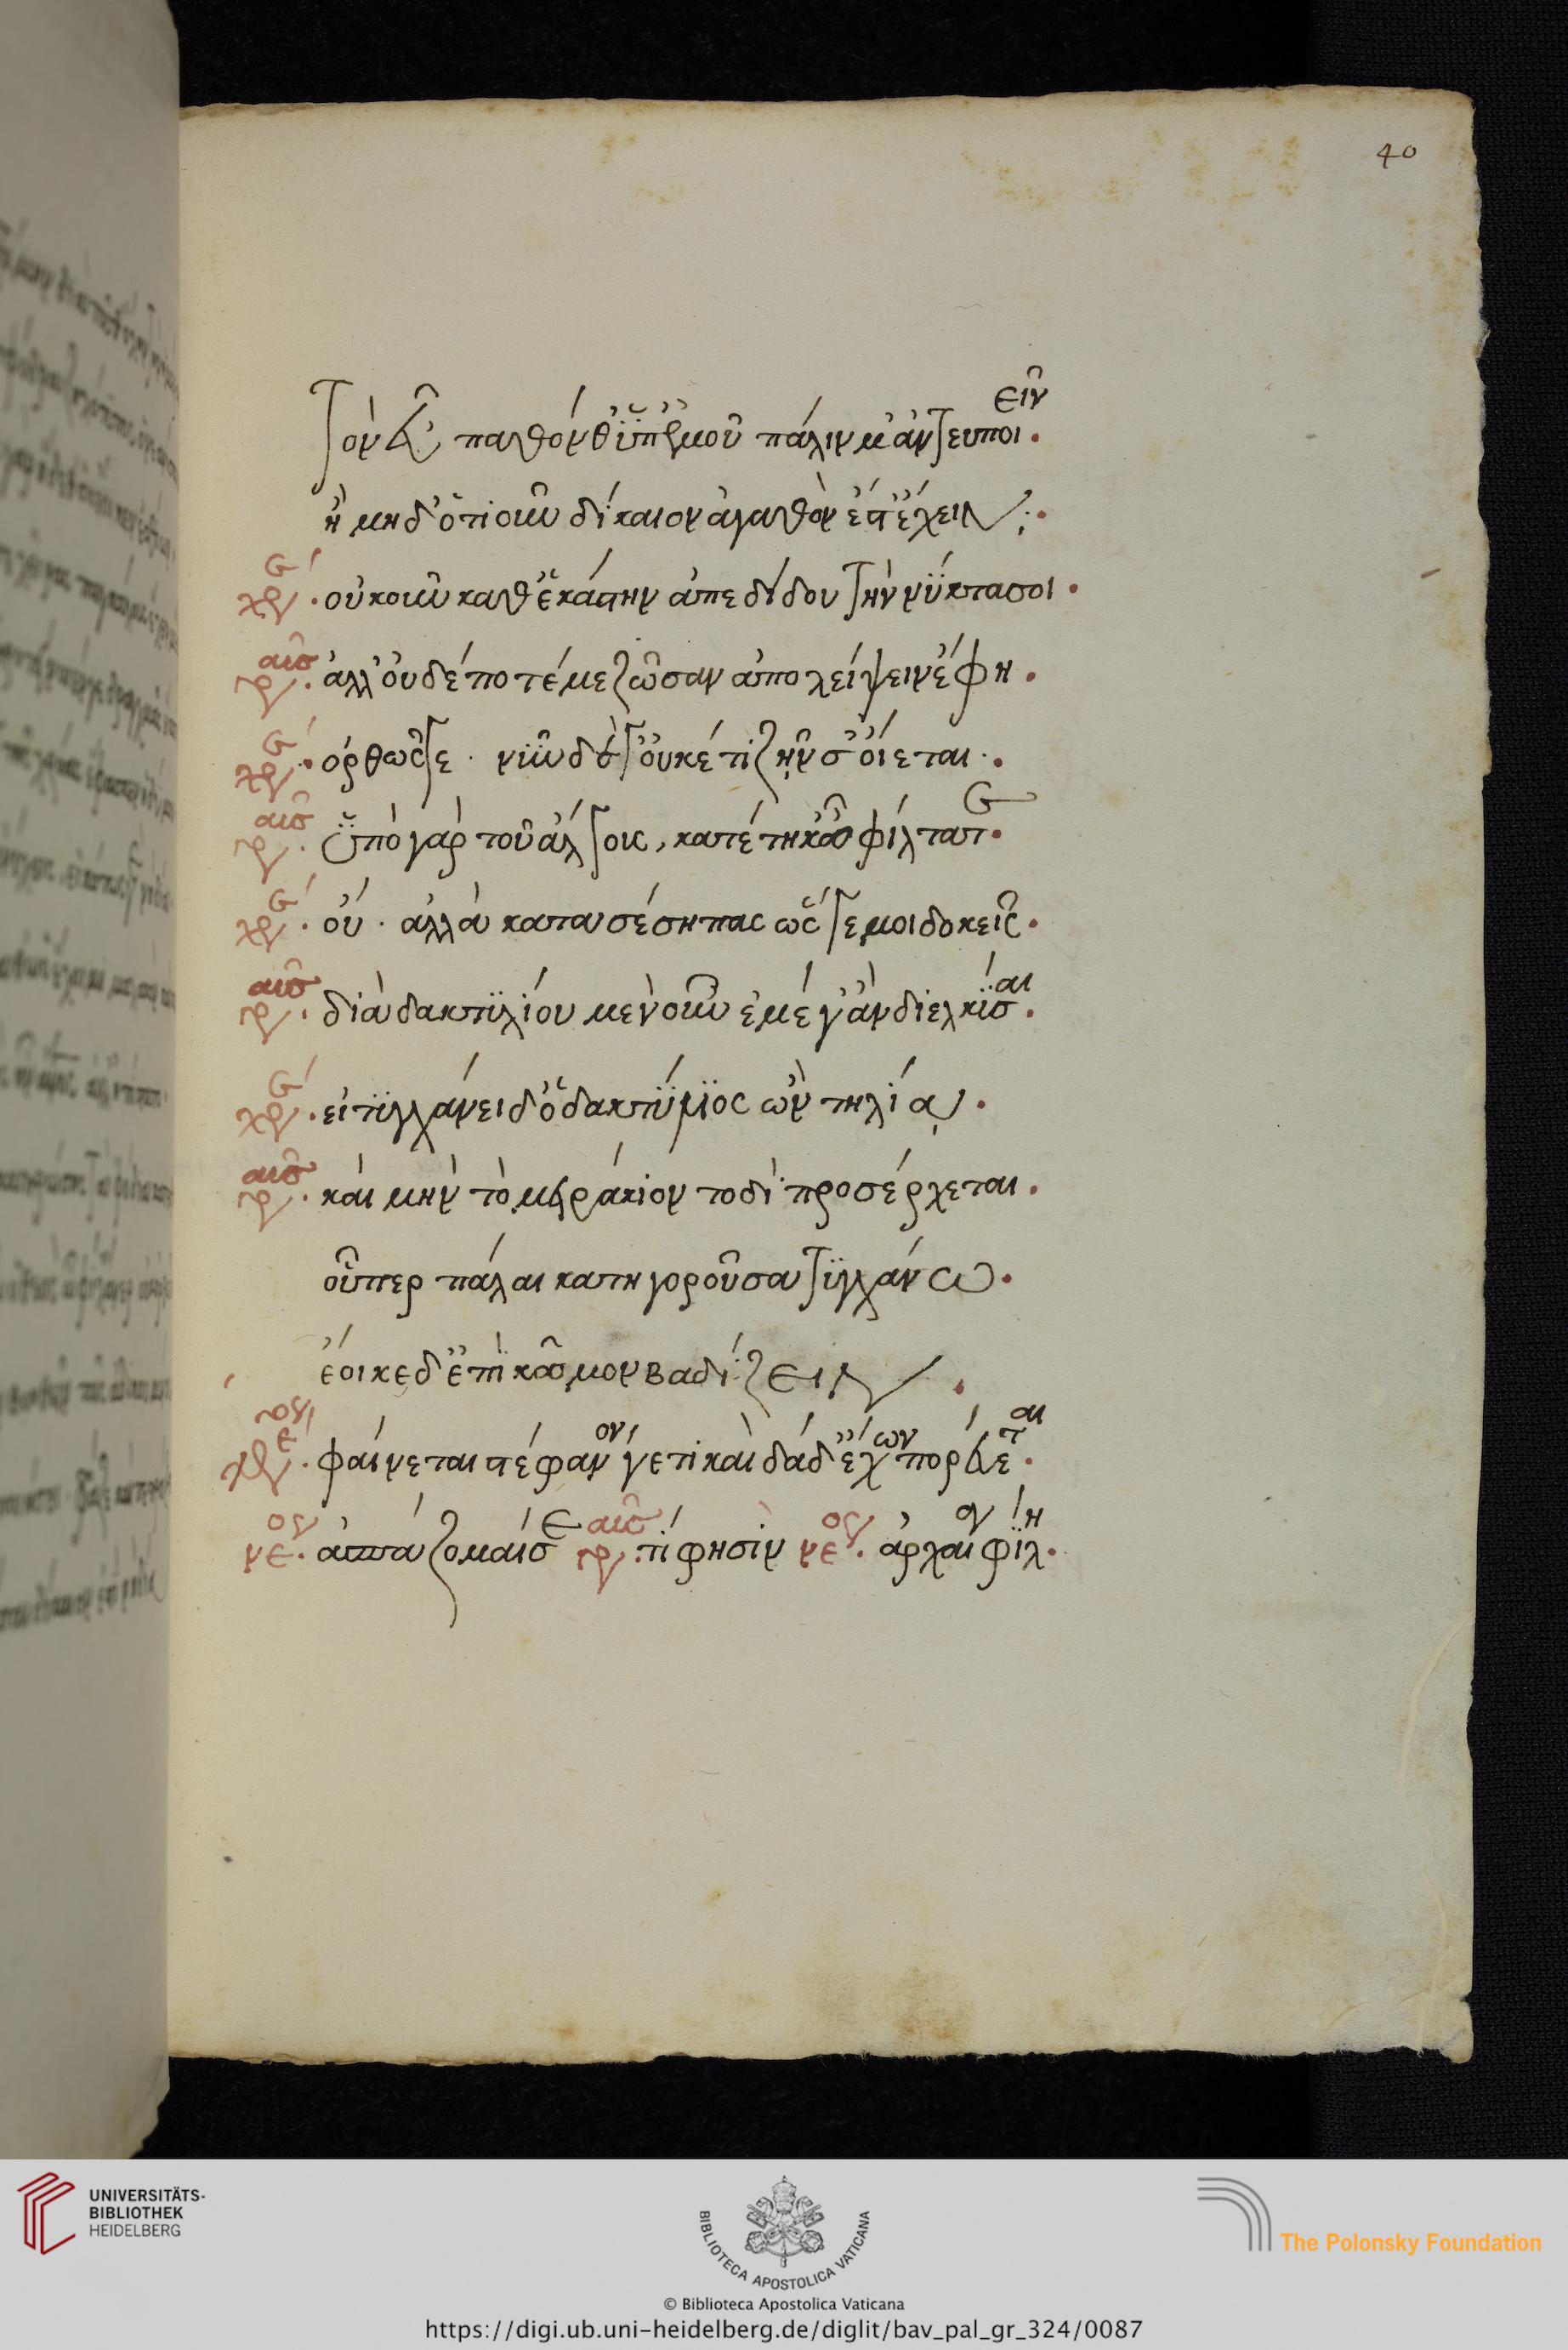 40
τὸν εὖ παθόνθ' ὑπ' ἐμοῦ πάλιν μ' ἀντευποιεῖν.
ἢ μηδ' ὁτιοῦν δίκαιον ἀγαθὸν ἐστ' ἔχειν;.
χρε. οὐκοῦν καθ' ἑκάστην ἀπεδίδου τὴν νύκτα σοι.
γραῦς. ἀλλ' οὐδέποτέ με ζῶσαν ἀπολείψειν ἔφη.
χρε. ὀρθῶς γε. νῦν δέ γ' οὐκέτι ζῆν σ' οἴεται.
γραῦς. ὑπὸ γὰρ τοῦ ἄλγους, κατέτηκ' ὦ φίλτατε.
χρε. οὔ. ἀλλὰ κατασέσηπας ὥς γέ μοι δοκεῖς.
γραῦς. διὰ δακτυλίου μὲν οὖν ἐμέ γ' ἂν διελκύσαι.
χρε. εἰ τυγχάνει δ' ὁ δακτύλιος ὢν τηλίας.
γραῦς. καὶ μὴν τὸ μειράκιον τοδὶ προσέρχεται.
οὗπερ πάλαι κατηγοροῦσα τυγχάνω.
ἔοικε δ' ἐπὶ κῶμον βαδίζειν.
φαίνεται στέφανόν γέ τι καὶ δᾷδ' ἔχων πορεύεται.
νε. ἀσπάζομαί σε γραῦς. τί φησιν νε. ἀρχαίον φίλη.
UNIVERSITÄTS-
BIBLIOTHEK
HEIDELBERG
BIBLIOTECA APOSTOLICA VATICANA
The Polonsky Foundation
© Biblioteca Apostolica Vaticana
https://digi.ub.uni-heidelberg.de/diglit/bav_pal_gr_324/0087